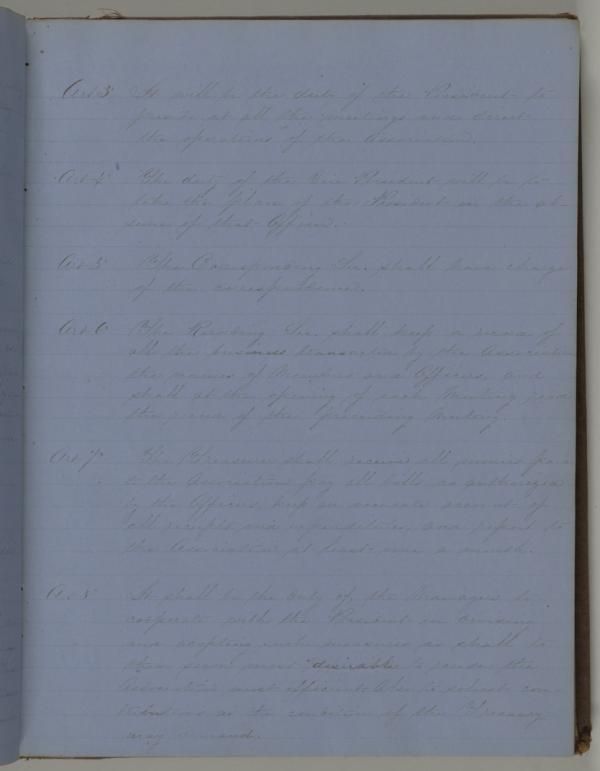 Art 3 It will be the duty of the President to
preside at all the meetings and direct
the operations of the Association.
Art 4 The duty of the Vice President will be to
take the place of the President in the ab-
sence of that Officer.
Art 5 The Corresponding Sec. shall have charge
of the correspondence.
Art 6 The Recording Sec. shall keep a record of
all the business transacted by the Association
the names of Members and Officers, and
shall at the opening of each Meeting read
the record of the preceeding Meeting.
Art 7 The Treasurer shall receive all monies paid
to the Association pay all bills as authorized
by the Officers, keep an accurate account of
all receipts and expenditures, and report to
the Association at least once a month.
Art 8 It shall be the duty of the Managers to
cooperate with the President in devising
and adopting such measures as shall to
them seem most desirable to render the
Association most efficient. Also to solicit con-
tributions as the condition of the Treasury
may demand.